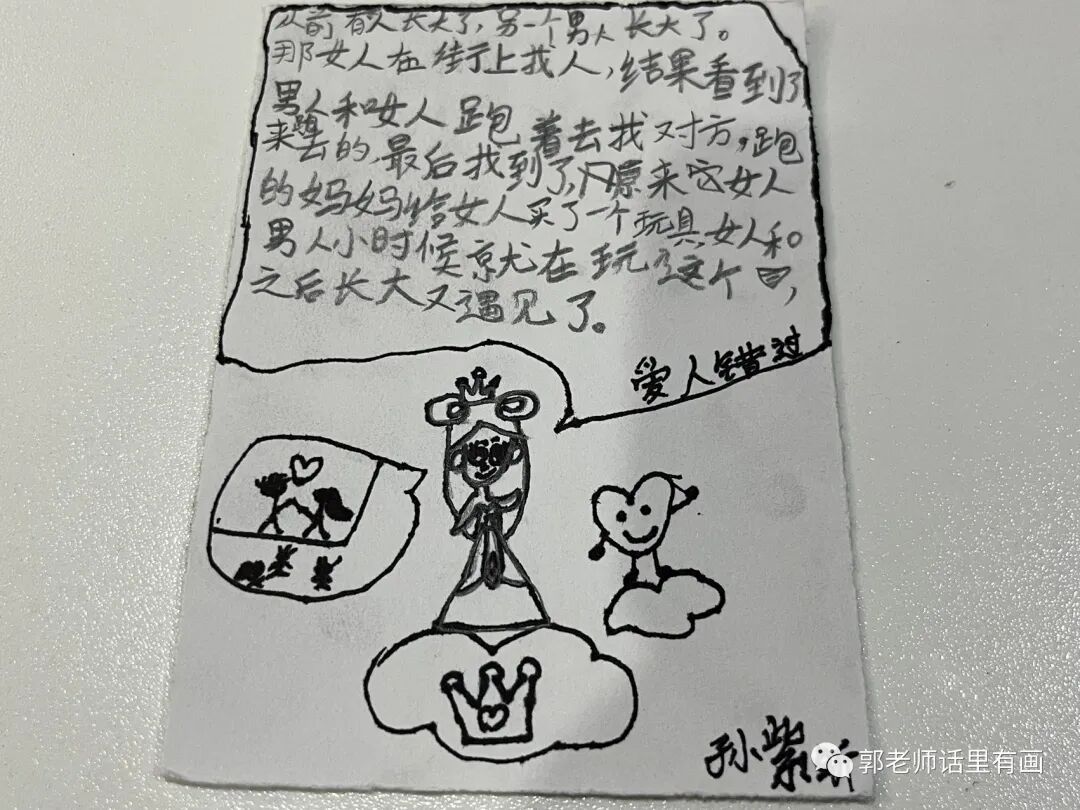 从前有人长大了,另一个男人长大了。
那女人在街上找人,结果看到了
男人和女人跑着去找对方,跑
来跑去的,最后找到了,原来它女人
的妈妈给女人买了一个玩具,女人和
男人小时候京尤在玩这个
之后长大又遇见了。
爱人错过
孙紫
郭老师话里有画